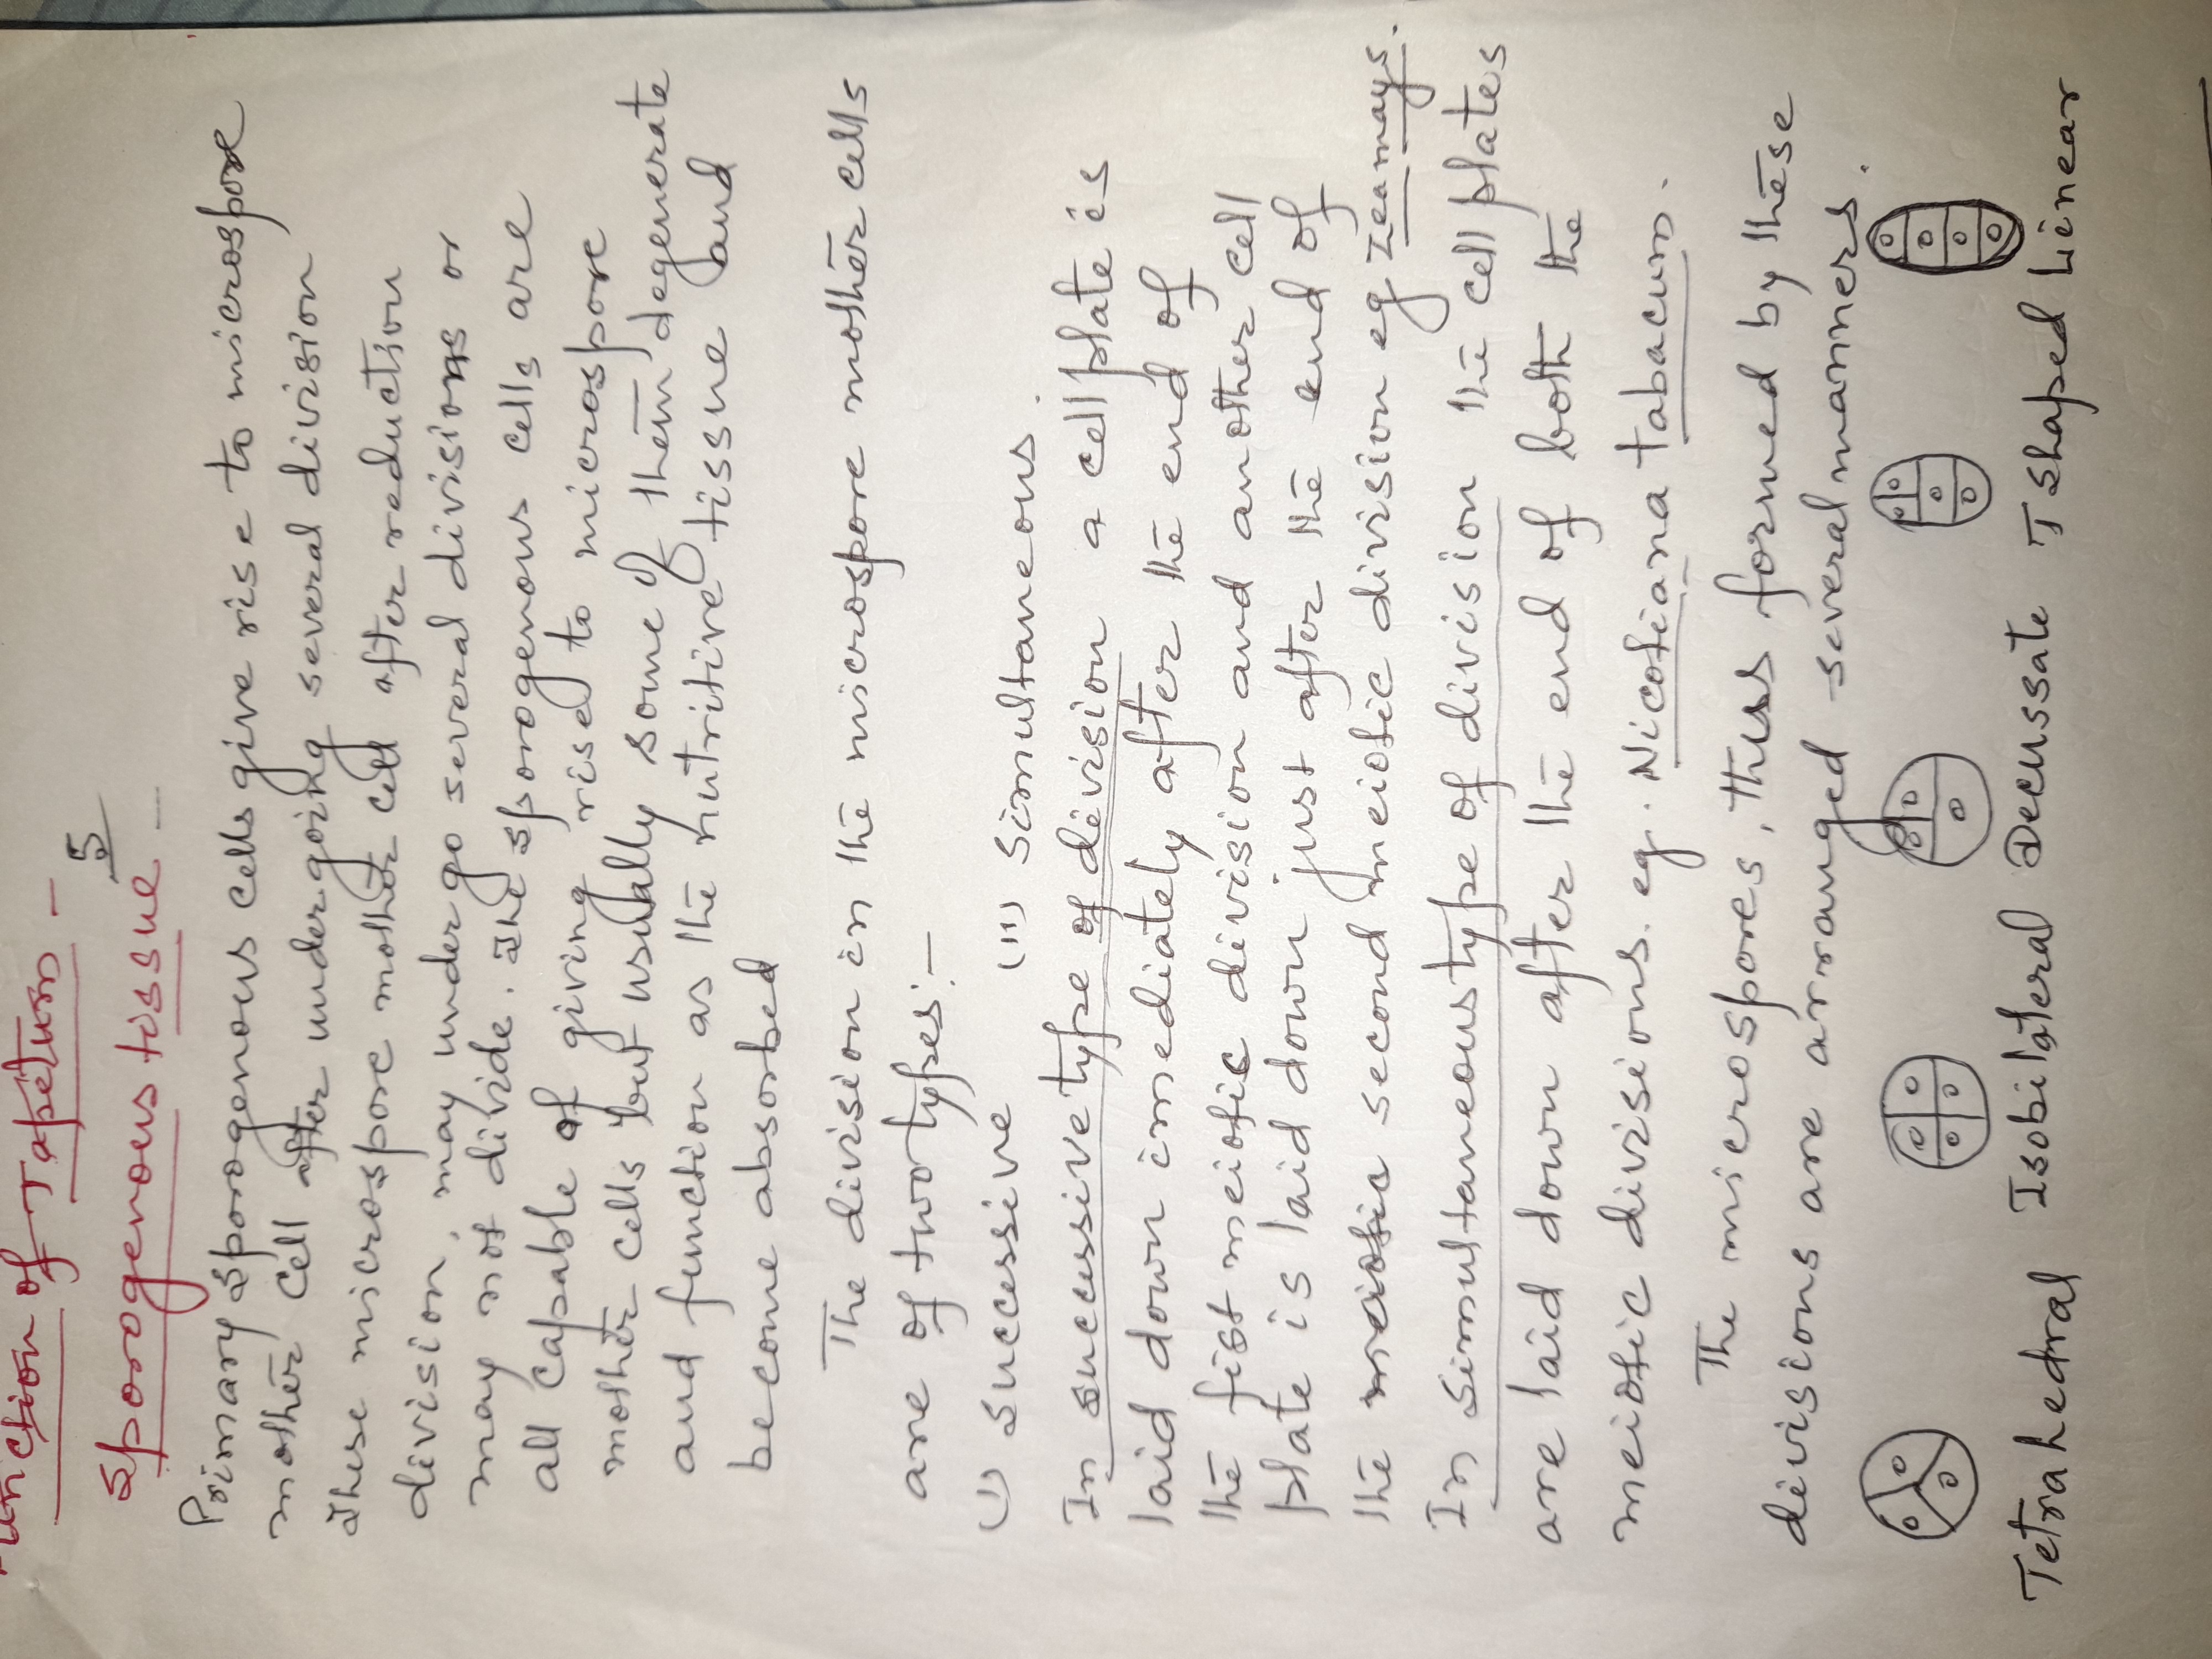 Function of Tapetum -
5
Sporogenous tissue -
Primary sporogenous cells give rise to microspore
mother cell after undergoing several division
These microspore mother cell after reduction
division, may under go several divisions or
may not divide. The sporogenous cells are
all capable of giving rise to microspore
mother cells but usually some of them degenerate
and function as the nutritive tissue and
become absorbed
The division in the microspore mother cells
are of two types:-
(I) Successive (II) Simultaneous.
In successive type of division a cell plate is
laid down immediately after the end of
the fist meiotic division and another cell
plate is laid down just after the end of
the meiotic second meiotic division eg Zea mays.
In simultaneous type of division the cell plates
are laid down after the end of both the
meiotic divisions. eg. Nicotiana tabacum.
The microspores, thus formed by these
divisions are arranged several manners.
Tetrahedral Isobilateral Decussate T Shaped Linear